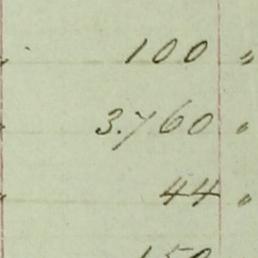 100 "
3.760 "
44 "
150